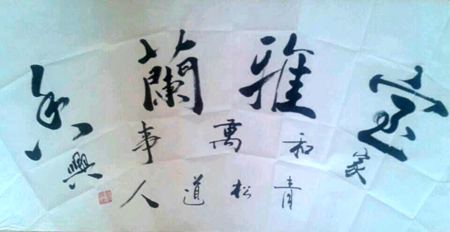 室雅蘭香
家和萬事興
青松道人